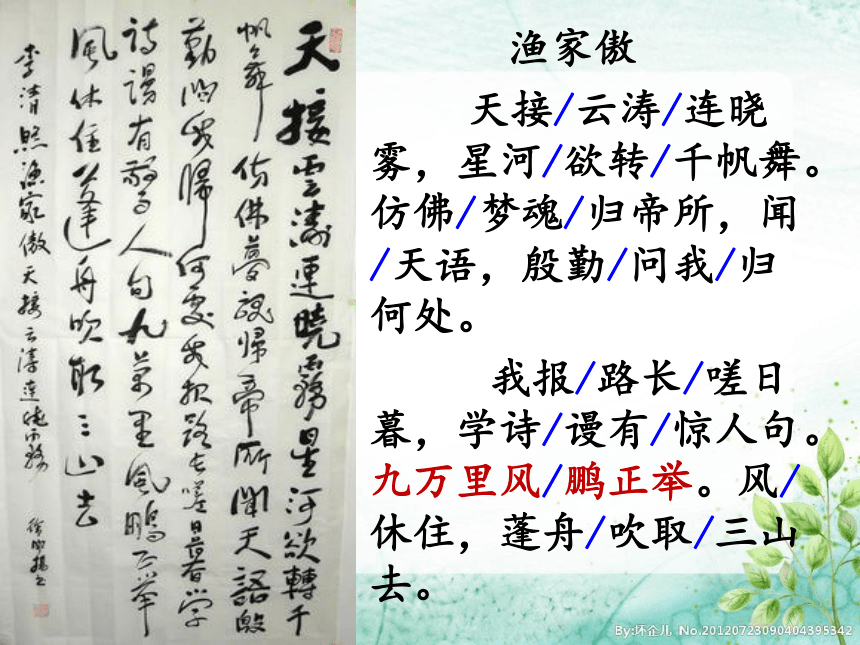 天接雲濤連曉霧星河欲轉千
帆舞仿佛夢魂歸帝所聞天語殷
勤問我歸何處我报路長嗟日暮學
詩謾有驚人句九萬里風鵬正举
風休住蓬舟吹取三山去
李清照漁家傲天接云濤連曉霧
渔家傲
天接/云涛/连晓
雾，星河/欲转/千帆舞。
仿佛/梦魂/归帝所，闻
/天语，殷勤/问我/归
何处。
我报/路长/嗟日
暮，学诗/谩有/惊人句。
九万里风/鹏正举。风/
休住，蓬舟/吹取/三山
去。
By:坏企儿 No.20120723090404395342